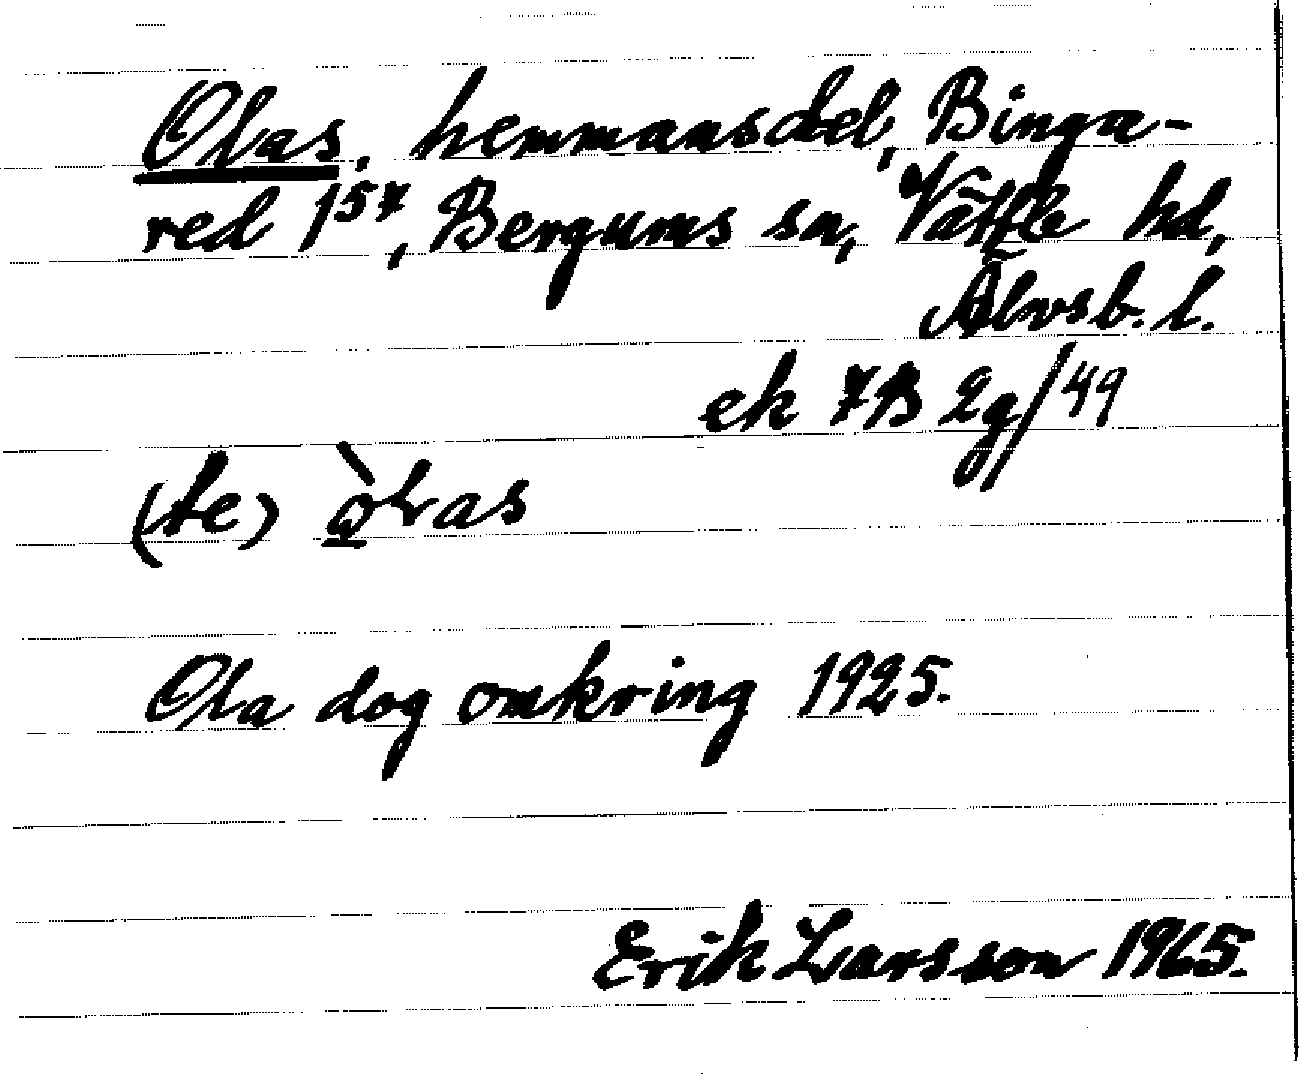 Olas, hemmansdel, Binga-
red 1⁵⁷, Bergums sn, Vättle hd,
Älvsb. l.
ek 7B 2g/49
(te) ò̱las
Ola dog omkring 1925.
Erik Larsson 1965.